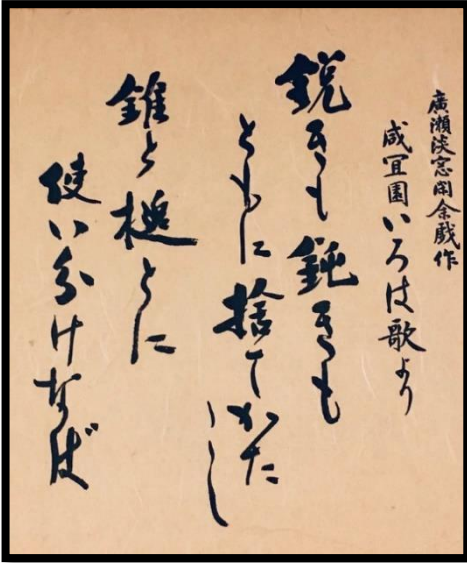 廣瀬淡窓閑余戯作
咸宜園いろは歌より
鋭きも鈍きも
ともに捨てかたし
錐と槌とに
使い分けなば